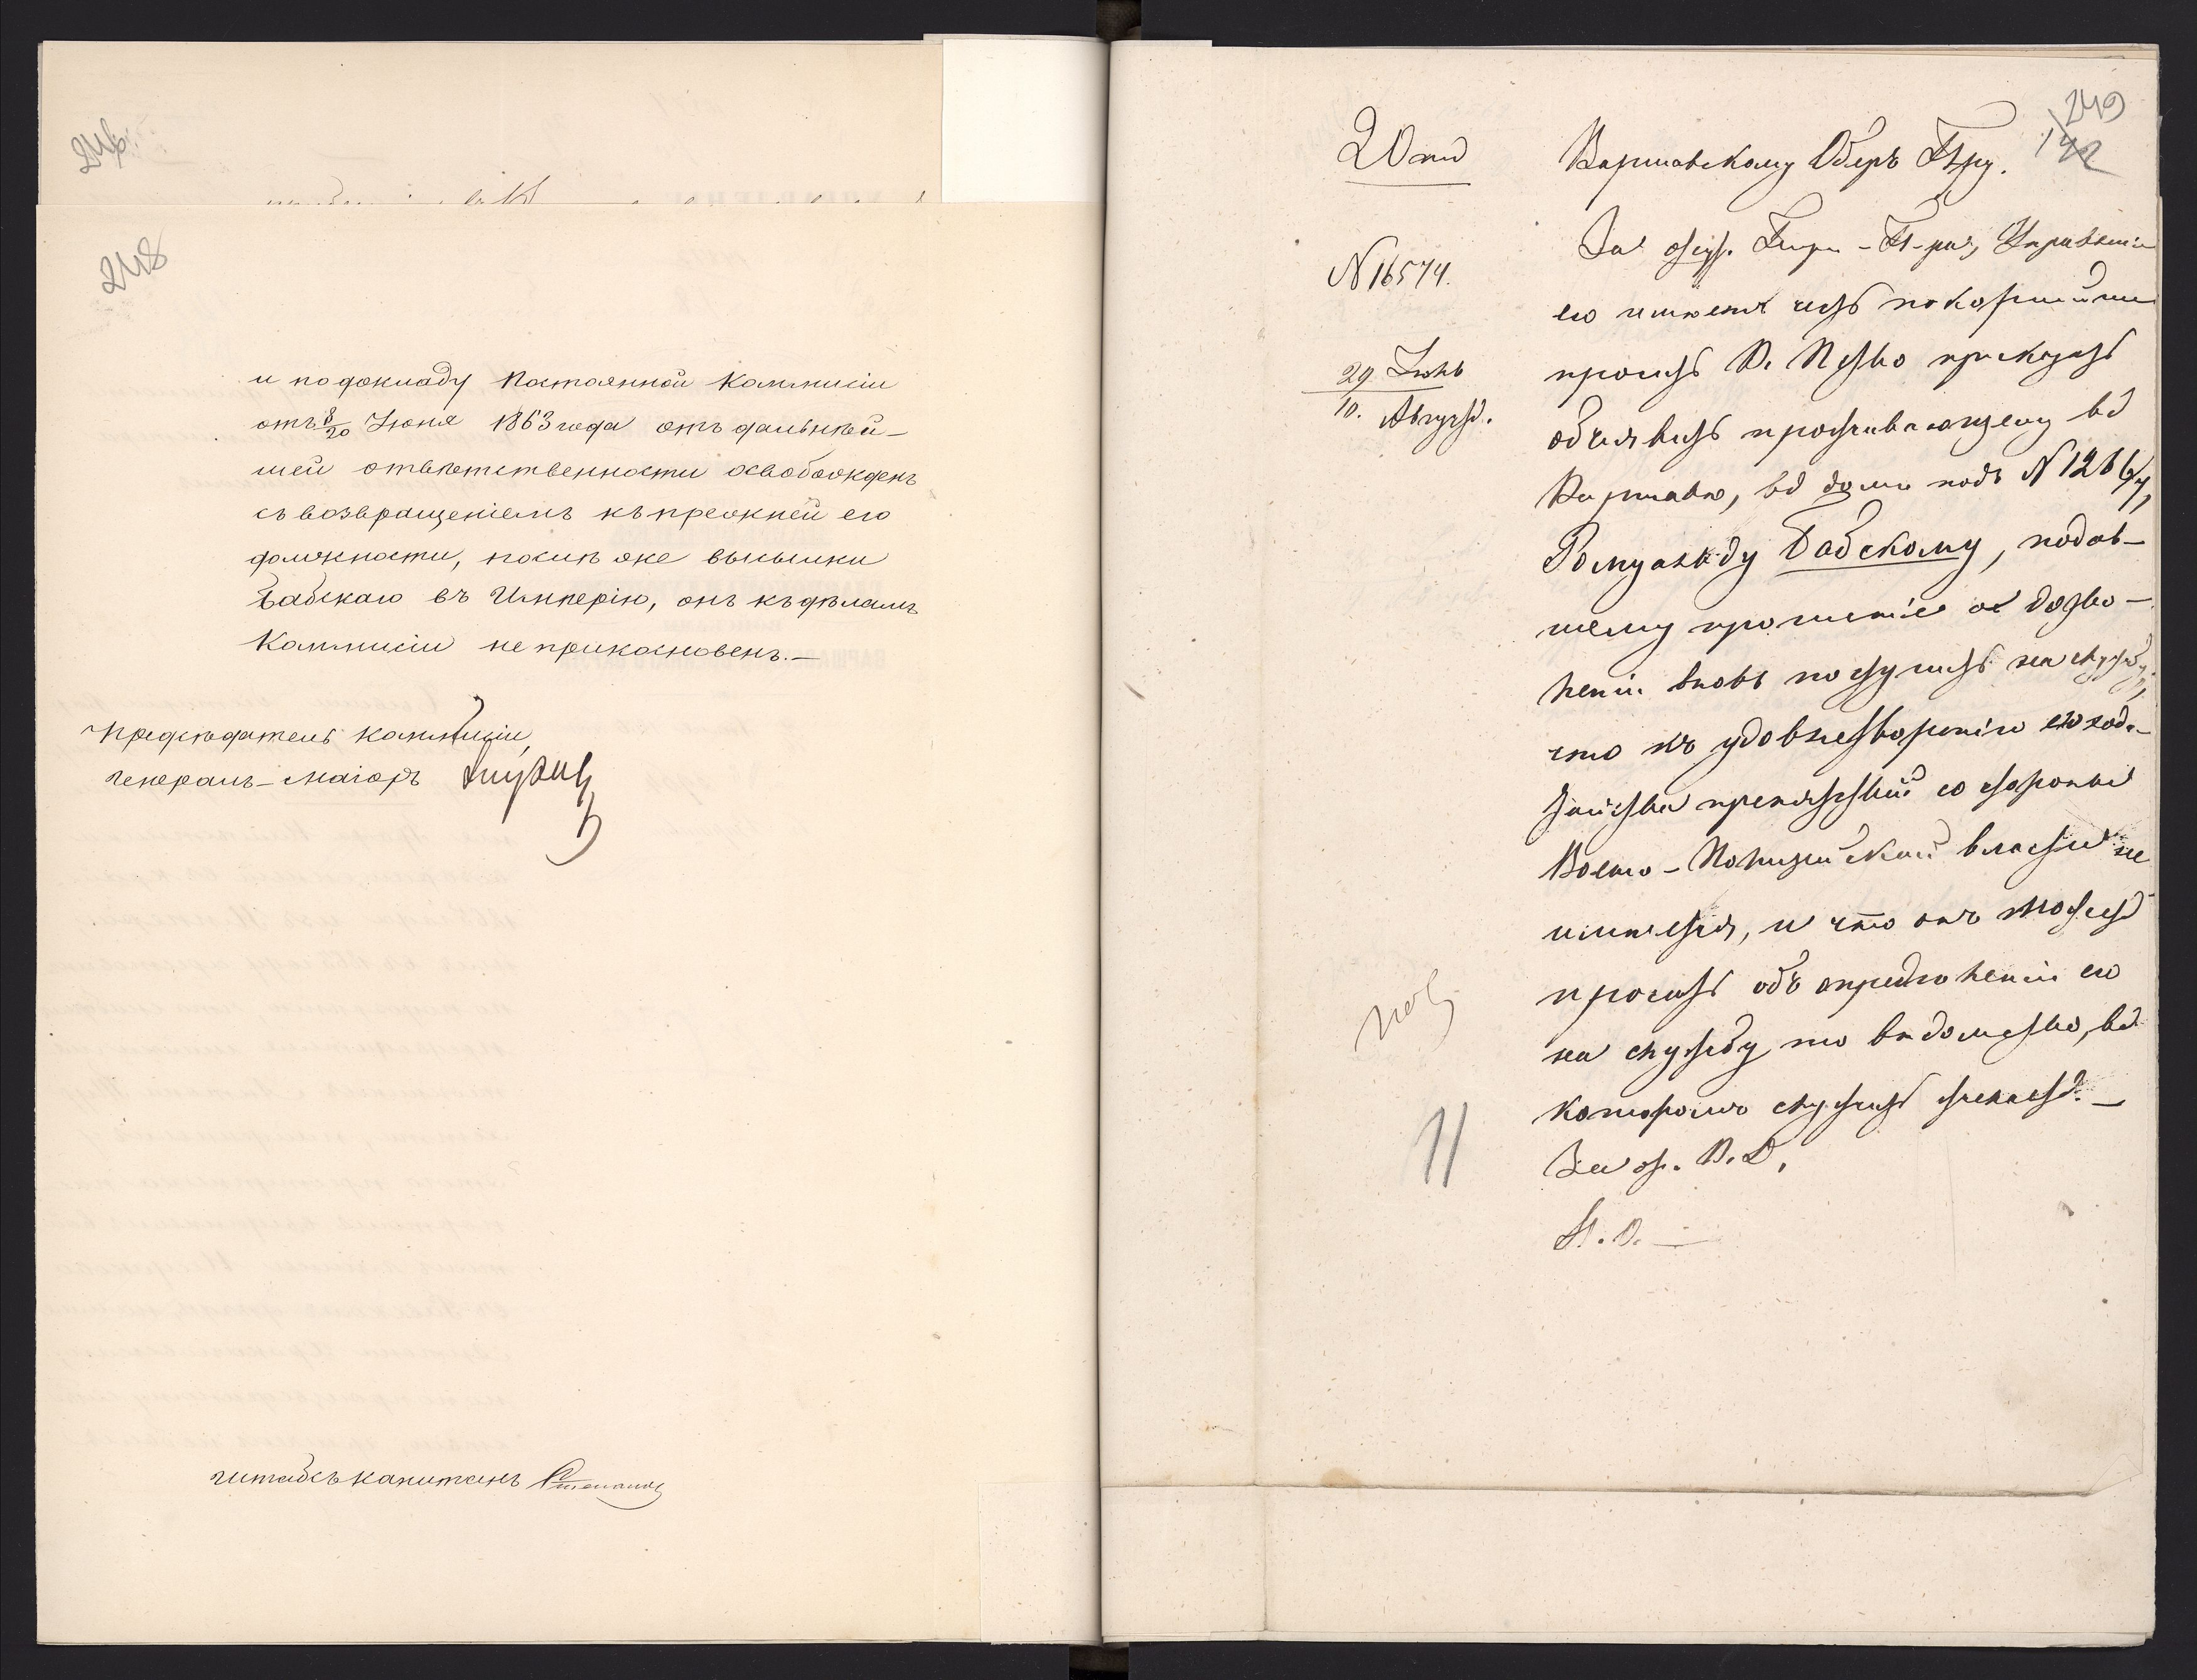 248
и по докладу Постоянной Коммисіи
отъ 8/20 Іюня 1863 года отъ дальнѣй-
шей отвѣтственности освобожденъ
съ возвращеніемъ къ прежней его
должности, послѣ же высылки
Бабскаго въ Имперію, онъ къ дѣламъ
Коммисіи не прикосновенъ.—
Предсѣдатель Коммисіи,
Генералъ-Маіоръ
Штабсъ Капитанъ Степановъ
249
142
20 го
Варшавскому Оберъ
N 16574.
За Управленіе
его имѣетъ честь покорнѣйше
29 Іюль
10. Августъ.
просить В. приказать
объявить проживающему въ
Варшавѣ, въ домѣ подъ N 1286/7,
Ромуальду Бабскому, подав-
шему прошеніе о дозво-
леніи вновь поступить на службу,
что къ удовлетворенію его хода-
тайства препятствій со стороны
Военно-Полицейской власти не
имѣется, и что онъ можетъ
просить объ опредѣленіи его
на службу то вѣдомство, въ
которомъ служить желаетъ.—
За В. Д.
Н. О.